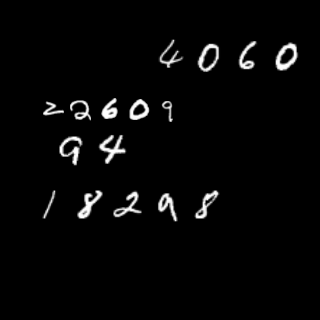 4060
22609
94
18298